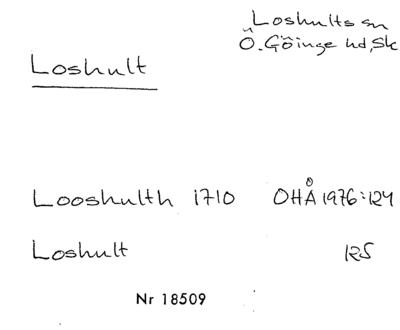 Loshults sn
Ö. Göinge hd, Sk
Loshult
Looshulth 1710 OHÅ 1976:124
Loshult 125
Nr 18509